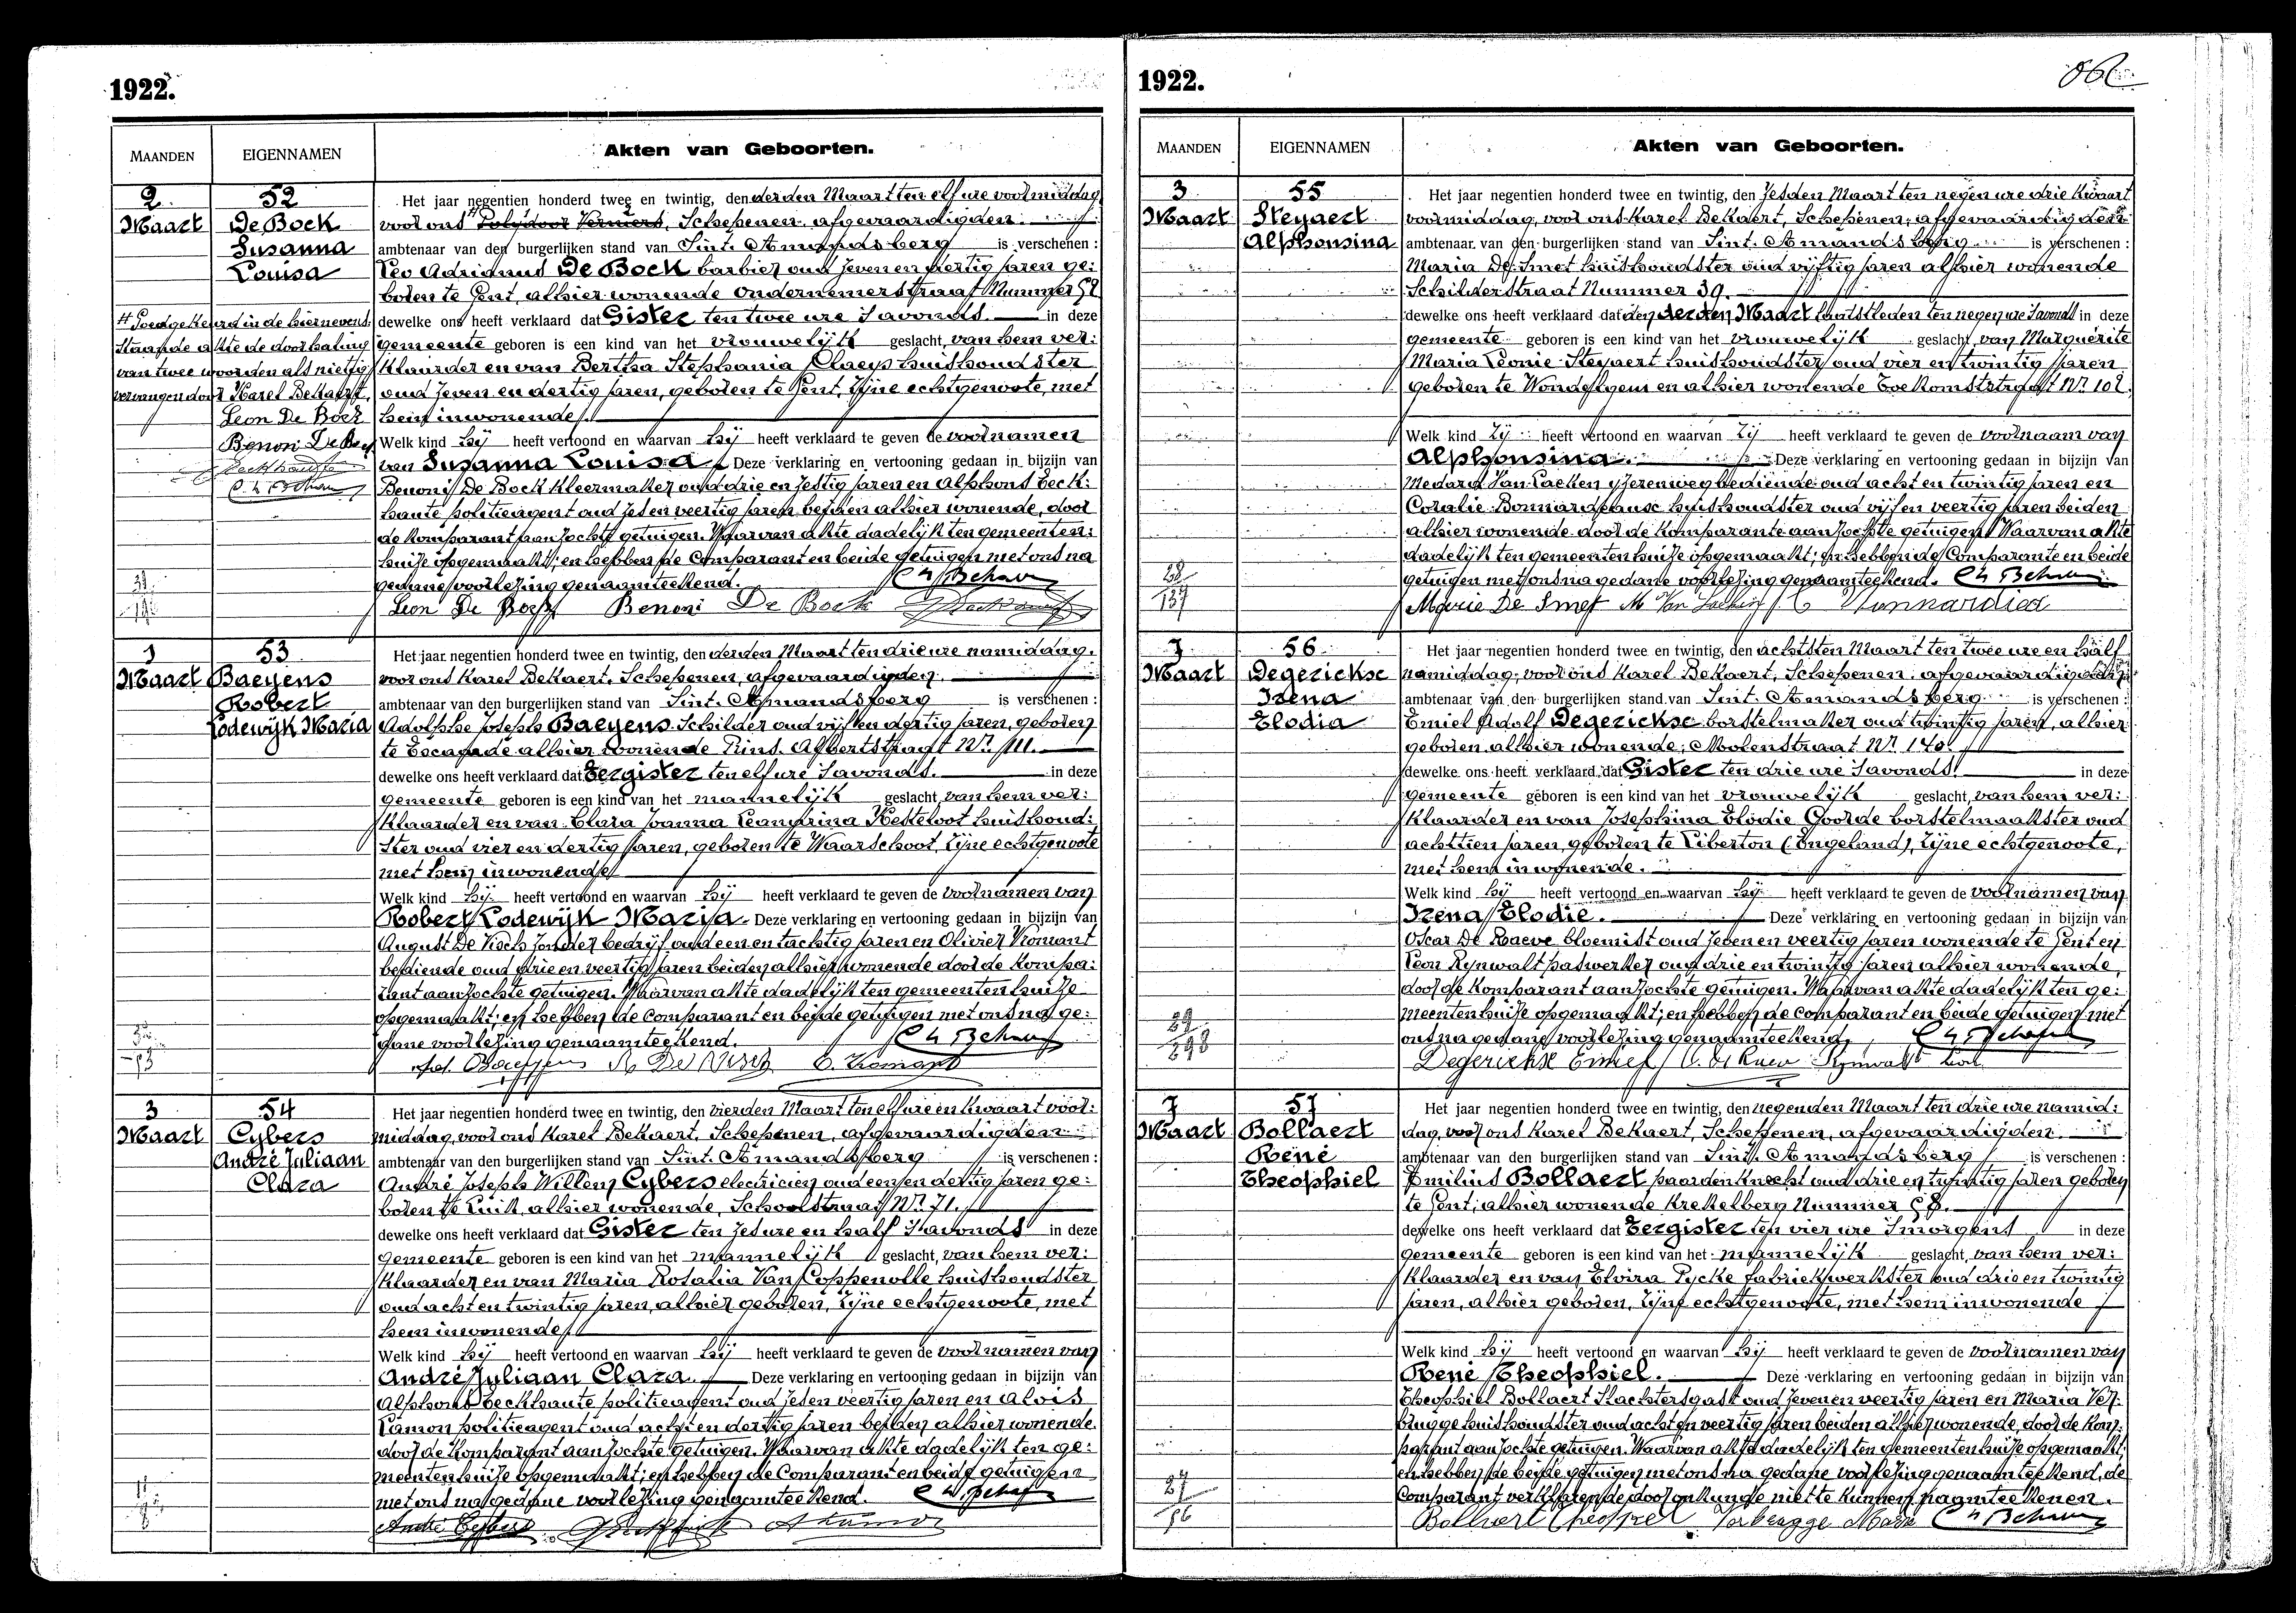 1922.
MAANDEN EIGENNAMEN Akten van Geboorten.
2 52
Maart De Bock
Susanna
Louisa
Het jaar negentien honderd twee en twintig, den derden Maart ten elf ure voormiddag
voor ons Polydoor Vermeers, Schepenen, afgevaardigden
ambtenaar van den burgerlijken stand van Sint. Amandsberg is verschenen :
Leo Adrianus De Bock barbier oud zeven en dertig jaren ge:
boren te Gent, alhier wonende Ondernemerstraat Nummer
dewelke ons heeft verklaard dat Gister ten twee ure 's avonds. in deze
gemeente geboren is een kind van het vrouwelijk geslacht, van hem ver:
klaarder en van Bertha Stephania Claeys huishoudster
oud zeven en dertig jaren, geboren te Gent, zijne echtgenoote, met
hem inwonende.
Welk kind hij heeft vertoond en waarvan hij heeft verklaard te geven de voornamen
van Susanna Louisa. Deze verklaring en vertooning gedaan in bijzijn van
Benoni De Bock kleermaker oud drie en zestig jaren en Alphons Beck:
haute politieagent oud zes en veertig jaren beiden alhier wonende, door
de komparant aanzochte getuigen. Waarvan akte dadelijk ten gemeenten:
huize opgemaakt; en hebben de Comparant en beide getuigen met ons na
gedane voorlezing genaamteekend.
Leon De Bock Benoni De Bock
H Goedgekeurd in de hiernevens
staande akte de doorhaling
van twee woorden als nietig
vervangen door Karel Bekaert,
Leon De Bock
Benoni De Bock
3 53
Maart Baeyens
Robert
Lodewijk Maria
Het jaar negentien honderd twee en twintig, den derden Maart ten drie ure namiddag.
voor ons Karel Bekaert, Schepenen, afgevaardigden
ambtenaar van den burgerlijken stand van Sint. Amandsberg is verschenen :
Adolphe Joseph Baeyens Schilder oud vijf en dertig jaren, geboren
te Escanade alhier wonende Prins Albertstraat Nr. 111.
dewelke ons heeft verklaard dat Eergister ten elf ure 's avonds. in deze
gemeente geboren is een kind van het mannelijk geslacht, van hem ver:
klaarder en van Clara Joanna Leandrina Hekeloot huishoud:
ster oud vier en dertig jaren, geboren te Waarschoot, zijne echtgenoote
met hem inwonende
Welk kind hij heeft vertoond en waarvan hij heeft verklaard te geven de voornamen van
Robert Lodewijk Maria. Deze verklaring en vertooning gedaan in bijzijn van
August De Visch zonder bedrijf oud een en tachtig jaren en Olivier Vromant
bediende oud drie en veertig jaren beiden alhier wonende door de kompa:
rant aanzochte getuigen. Waarvan akte dadelijk ten gemeentenhuize
opgemaakt; en hebben de Comparant en beide getuigen met ons na ge:
dane voorlezing genaamteekend.
Ad. Baeyens A. De Visch O. Vromant
3 54
Maart Cybers
André Juliaan
Clara
Het jaar negentien honderd twee en twintig, den vierden Maart ten elf ure en kwaart voor:
middag, voor ons Karel Bekaert, Schepenen, afgevaardigden
ambtenaar van den burgerlijken stand van Sint. Amandsberg is verschenen :
André Joseph Willem Cybers electricien oud een en dertig jaren ge:
boren te Luik, alhier wonende, Schoolstraat Nr. 71.
dewelke ons heeft verklaard dat Gister ten zes ure en half 's avonds in deze
gemeente geboren is een kind van het mannelijk geslacht, van hem ver:
klaarder en van Maria Rosalia Van Coppenolle huishoudster
oud acht en twintig jaren, alhier geboren, zijne echtgenoote, met
hem inwonende.
Welk kind hij heeft vertoond en waarvan hij heeft verklaard te geven de voornamen van
André Juliaan Clara. Deze verklaring en vertooning gedaan in bijzijn van
Alphons Beckhaute politieagent oud zes en veertig jaren en Alois
Lamon politieagent oud acht en dertig jaren beiden alhier wonende.
door de komparant aanzochte getuigen. Waarvan akte dadelijk ten ge:
meentenhuize opgemaakt; en hebben de Comparant en beide getuigen
met ons na gedane voorlezing genaamteekend.
André Cybers
1922.
MAANDEN EIGENNAMEN Akten van Geboorten.
3 55
Maart Steyaert
Alphonsina
Het jaar negentien honderd twee en twintig, den zesden Maart ten negen ure drie kwaart
voormiddag, voor ons Karel Bekaert, Schepenen, afgevaardigden
ambtenaar van den burgerlijken stand van Sint. Amandsberg is verschenen :
Maria De Smet huishoudster oud vijftig jaren alhier wonende
Schilderstraat Nummer 39.
dewelke ons heeft verklaard dat den derden Maart laatstleden ten negen ure 's avonds in deze
gemeente geboren is een kind van het vrouwelijk geslacht, van Marguérite
Maria Leonie Steyaert huishoudster oud vier en twintig jaren
geboren te Wondelgem en alhier wonende Toekomststraat Nr. 102.
Welk kind Zij heeft vertoond en waarvan Zij heeft verklaard te geven de voornaam van
Alphonsina. Deze verklaring en vertooning gedaan in bijzijn van
Medard Van Laeken yzerenwegbediende oud acht en twintig jaren en
Coralie Bonnardeaux huishoudster oud vijf en veertig jaren beiden
alhier wonende door de komparante aanzochte getuigen. Waarvan akte
dadelijk ten gemeentenhuize opgemaakt; en hebben de Comparante en beide
getuigen met ons na gedane voorlezing genaamteekend.
28
137
Marie De Smet M Van Laeken
7 56
Maart Degerickse
Irena
Elodia
Het jaar negentien honderd twee en twintig, den achtsten Maart ten twee ure en half
namiddag, voor ons Karel Bekaert, Schepenen, afgevaardigden
ambtenaar van den burgerlijken stand van Sint. Amandsberg is verschenen :
Emiel Adolf Degerickse borstelmaker oud twintig jaren, alhier
geboren alhier wonende, Molenstraat Nr. 140.
dewelke ons heeft verklaard dat Gister ten drie ure 's avonds. in deze
gemeente geboren is een kind van het vrouwelijk geslacht, van hem ver:
klaarder en van Josephina Elodie Goorde borstelmaakster oud
achttien jaren, geboren te Liberton (Engeland), zijne echtgenoote,
met hem inwonende.
Welk kind hij heeft vertoond en waarvan hij heeft verklaard te geven de voornamen van
Irena Elodie. Deze verklaring en vertooning gedaan in bijzijn van
Oscar De Raeve bloemist oud zeven en veertig jaren wonende te Gent en
Leon Rynwalt paswerker oud drie en twintig jaren alhier wonende,
door de komparant aanzochte getuigen. Waarvan akte dadelijk ten ge:
meentenhuize opgemaakt; en hebben de comparant en beide getuigen met
ons na gedane voorlezing genaamteekend.
29
293
Degerickse Emiel O. De Raeve Rynwalt Leon
7 57
Maart Bollaert
René
Theophiel
Het jaar negentien honderd twee en twintig, den negenden Maart ten drie ure namid:
dag, voor ons Karel Bekaert, Schepenen, afgevaardigden
ambtenaar van den burgerlijken stand van Sint. Amandsberg is verschenen :
Emilius Bollaert paardenknecht oud drie en twintig jaren geboren
te Gent; alhier wonende Krekelberg Nummer 58.
dewelke ons heeft verklaard dat Eergister ten vier ure 's morgens in deze
gemeente geboren is een kind van het mannelijk geslacht, van hem ver:
klaarder en van Elvira Pycke fabriekwerkster oud drie en twintig
jaren, alhier geboren, zijne echtgenoote, met hem inwonende
Welk kind hij heeft vertoond en waarvan hij heeft verklaard te geven de voornamen van
René Theophiel. Deze verklaring en vertooning gedaan in bijzijn van
Theophiel Bollaert Slachtersgast oud zeven en veertig jaren en Maria Ver:
brugge huishoudster oud acht en veertig jaren beiden alhier wonende, door de kom:
parant aanzochte getuigen. Waarvan akte dadelijk ten gemeentenhuize opgemaakt;
en hebben de beide getuigen met ons na gedane voorlezing genaamteekend, de
Comparant verklarende door onkunde niet te kunnen naamteekenen.
27
56
Bollaert Theophiel Verbrugge Maria